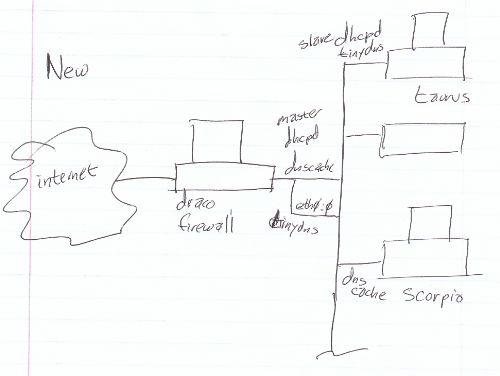 New
slave dhcpd
tinydns
taurus
master
dhcpd
dnscache
internet
draco
firewall
eth0:0
tinydns
dns
cache
Scorpio